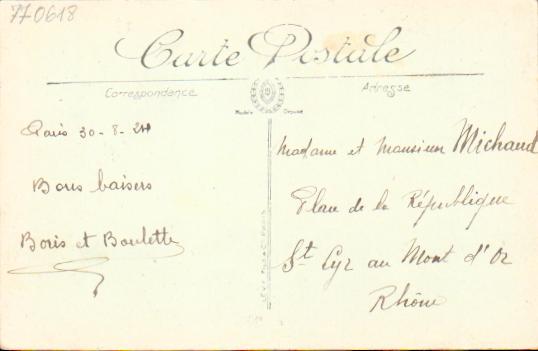 770618
Carte Postale
Correspondance
Adresse
Modèle Déposé
Paris 30-8-24
Bons baisers
Boris et Boulette
Madame et Monsieur Michaud
Place de la République
St Cyr au Mont d'Or
Rhône